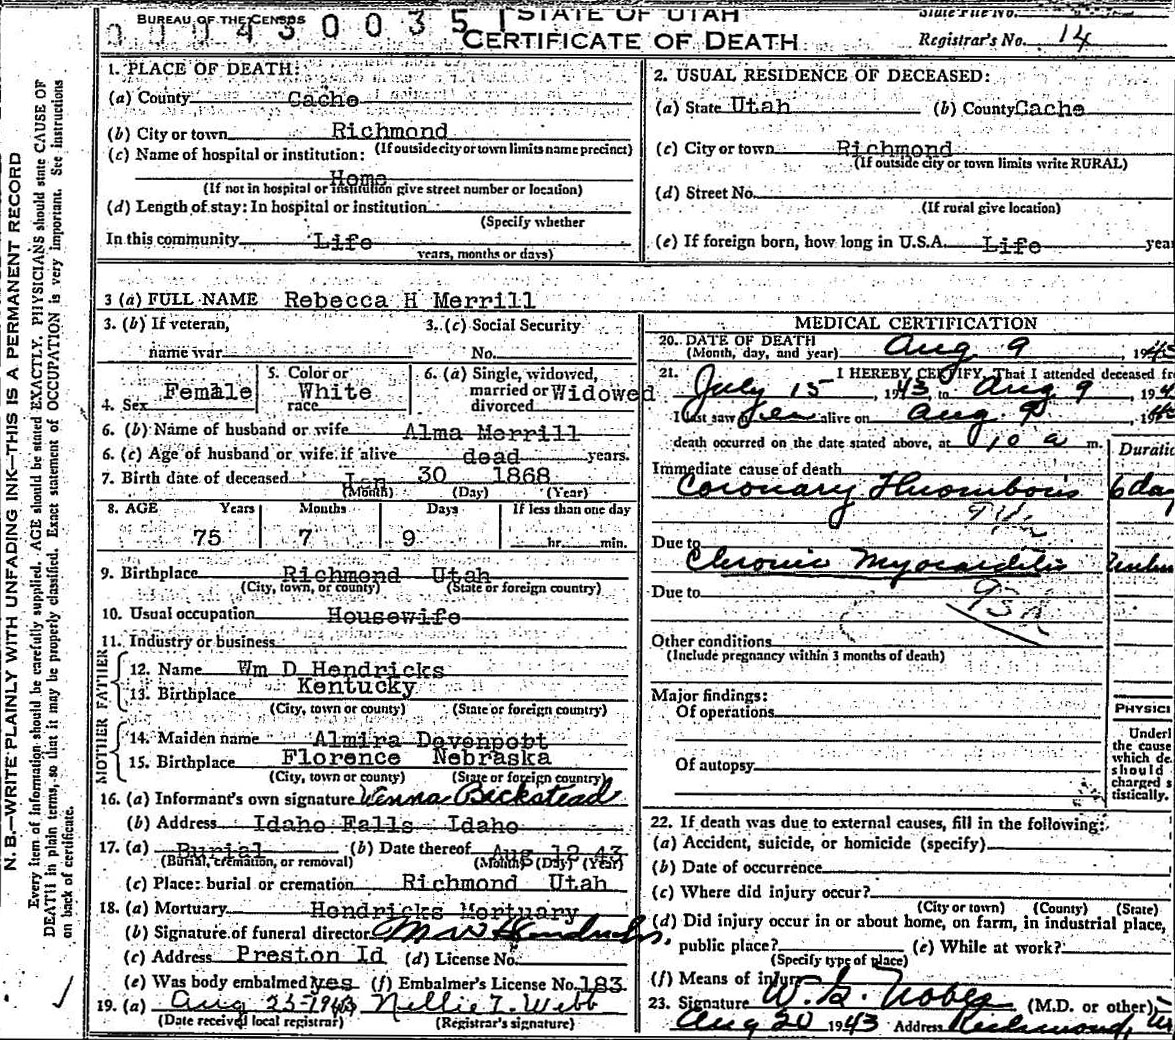 BUREAU OF THE CENSUS
0 0 4 3 0 0 3 5 1
STATE OF UTAH
CERTIFICATE OF DEATH
State File No.
Registrar's No. 14
N. B.—WRITE PLAINLY WITH UNFADING INK—THIS IS A PERMANENT RECORD
Every item of information should be carefully supplied. AGE should be stated EXACTLY. PHYSICIANS should state CAUSE OF
DEATH in plain terms, so that it may be properly classified. Exact statement of OCCUPATION is very important. See instructions
on back of certificate.
1. PLACE OF DEATH:
(a) County Cache
(b) City or town Richmond
(If outside city or town limits name precinct)
(c) Name of hospital or institution:
Home
(If not in hospital or institution give street number or location)
(d) Length of stay: In hospital or institution
(Specify whether
In this community Life
years, months or days)
2. USUAL RESIDENCE OF DECEASED:
(a) State Utah (b) County Cache
(c) City or town Richmond
(If outside city or town limits write RURAL)
(d) Street No.
(If rural give location)
(e) If foreign born, how long in U.S.A. Life yea
3 (a) FULL NAME Rebecca H Merrill
3. (b) If veteran, 3. (c) Social Security
name war No.
4. Sex Female 5. Color or race White 6. (a) Single, widowed, married or divorced Widowed
6. (b) Name of husband or wife Alma Merrill
6. (c) Age of husband or wife if alive dead years.
7. Birth date of deceased Jan 30 1868
(Month) (Day) (Year)
8. AGE Years Months Days If less than one day
75 7 9 hr. min.
9. Birthplace Richmond Utah
(City, town, or county) (State or foreign country)
10. Usual occupation Housewife
11. Industry or business
FATHER
12. Name Wm D Hendricks
13. Birthplace Kentucky
(City, town or county) (State or foreign country)
MOTHER
14. Maiden name Almira Davenpobt
15. Birthplace Florence Nebraska
(City, town or county) (State or foreign country)
16. (a) Informant's own signature Venna Beckstead
(b) Address Idaho Falls Idaho
17. (a) Burial (b) Date thereof Aug 12 43
(Burial, cremation, or removal) (Month) (Day) (Year)
(c) Place: burial or cremation Richmond Utah
18. (a) Mortuary Hendricks Mortuary
(b) Signature of funeral director M W Hendricks.
(c) Address Preston Id (d) License No.
(e) Was body embalmed yes (f) Embalmer's License No. 183
19. (a) Aug 25-1943 Nellie T. Webb
(Date received local registrar) (Registrar's signature)
MEDICAL CERTIFICATION
20. DATE OF DEATH
(Month, day, and year) Aug 9, 19
21. I HEREBY CERTIFY, That I attended deceased fr
July 15, 1943, to Aug 9, 194
I last saw alive on Aug. 9, 194
death occurred on the date stated above, at 10 a m.
Duratio
Immediate cause of death
Coronary Thrombosis 6 day
Due to
Chronic Myocarditis
Due to
Other conditions
(Include pregnancy within 3 months of death)
Major findings:
Of operations
Of autopsy
PHYSICI
Underl
the cause
which de
should
charged s
tistically.
22. If death was due to external causes, fill in the following:
(a) Accident, suicide, or homicide (specify)
(b) Date of occurrence
(c) Where did injury occur?
(City or town) (County) (State)
(d) Did injury occur in or about home, on farm, in industrial place,
public place? (e) While at work?
(Specify type of place)
(f) Means of injury
23. Signature W. G. Nobes (M.D. or other)
Aug 20 1943 Address Richmond,